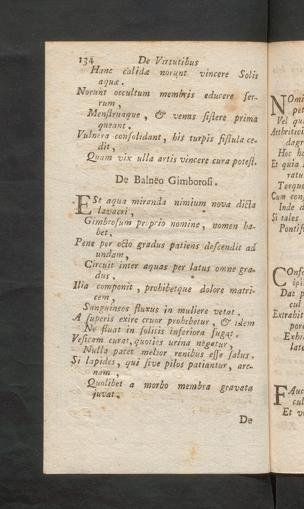 134 De Virtutibus
Hanc calidæ norunt vincere Solis
aquæ.
Norunt occultum membris educere fer-
rum,
Menstruaque, & venus sistere prima
queant.
Vulnera consolidant, his turpis fistula ce-
dit,
Quam vix ulla artis vincere cura potest.
De Balneo Gimborosi.
ESt aqua miranda nimium nova dicta
lavacri,
Gimborosum proprio nomine, nomen ha-
bet,
Pene per octo gradus patiens descendit ad
undam,
Circuit inter aquas per latus omne gra-
dus.
Ilia componit, prohibetque dolore matri-
cem,
Sanguineos fluxus in muliere vetat.
A superis exire cruor prohibetur, & idem
Ne fluat in solitis inferiora fugat.
Vesicam curat, quoties urina negatur,
Nulla patet melior renibus esse salus.
Si lapides, qui sive pilos patiantur, are-
nam,
Quolibet a morbo membra gravata
juvat.
De
NOmi
pet
Vel qu
Architect
dagr
Hoc ha
Et quia
ratu
Torque
Cum conj
Inde d
Si tales
Pontif
COnse
opi
Dat p
cul
Extrahit
pore
Exhi
late
FAuc
cul
Et v